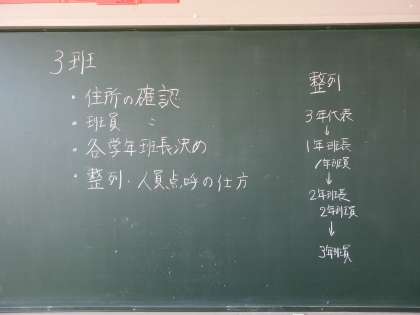 3班
・住所の確認
・班員 〃
・各学年班長決め
・整列・人員点呼の仕方
整列
3年代表
↓
1年班長
1年班員
↓
2年班長
2年班員
↓
3年班員